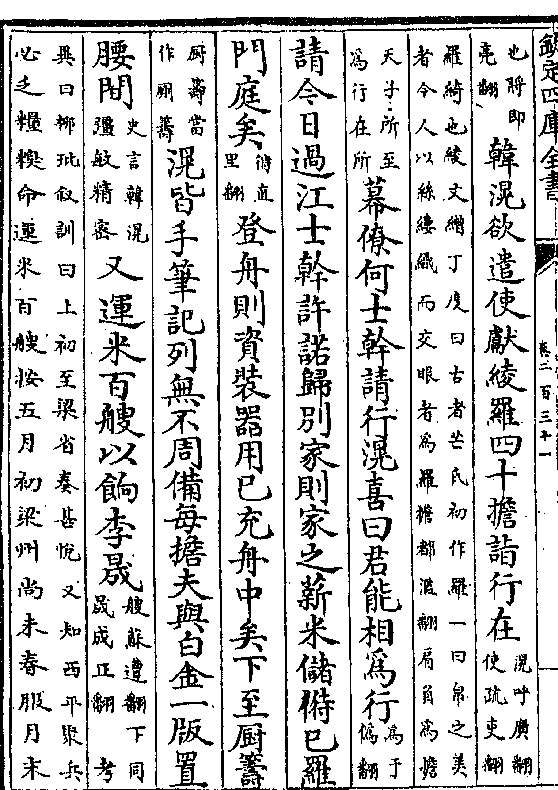 欽定四庫全書
卷二百三十一
也將即
亮翻
韓滉欲遣使獻綾羅四十擔詣行在
滉呼廣翻
使疏吏翻
羅綺也綾文繒丁度曰古者芒氏初作羅一曰帛之美
者令人以絲縷織而交眼者為羅擔都濫翻肩負為擔
天子所至
為行在所
幕僚何士幹請行滉喜曰君能相為行
為于
偽翻
請今日過江士幹許諾歸別家則家之薪米儲偫已羅
門庭矣
偫直
里翻
登舟則資裝器用已充舟中矣下至厨籌
厨籌當
作厠籌
滉皆手筆記列無不周備每擔夫與白金一版置
腰間
史言韓滉
彊敏精密
又運米百艘以餉李晟
艘蘇遭翻下同
晟成正翻 考
異曰柳玭敘訓曰上初至梁省奏甚悅又知西平聚兵
必乏糧糗命運米百艘按五月初梁州尚未春服月末